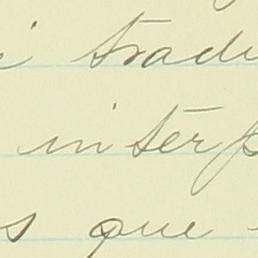 i tradu
interp
s que